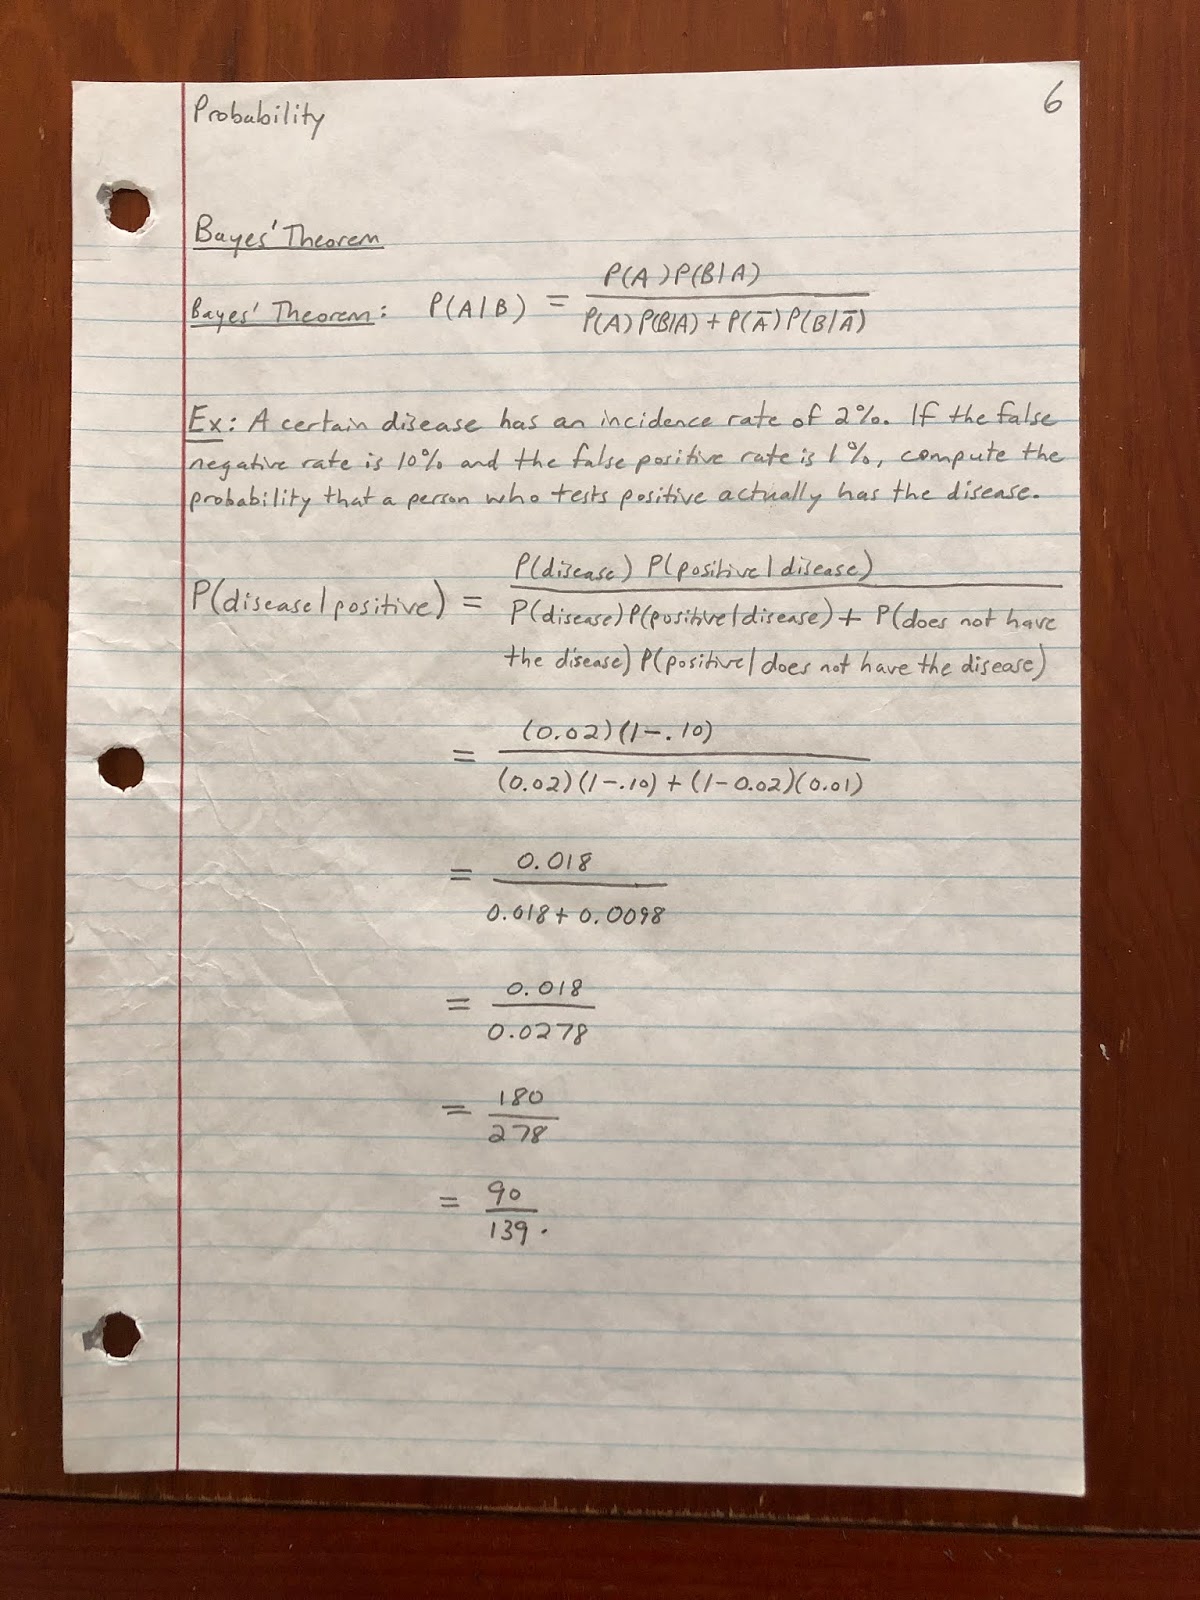 Probability
6
Bayes' Theorem
Bayes' Theorem: P(A|B) = P(A)P(B|A)
P(A)P(B|A) + P(A̅)P(B|A̅)
Ex: A certain disease has an incidence rate of 2%. If the false
negative rate is 10% and the false positive rate is 1%, compute the
probability that a person who tests positive actually has the disease.
P(disease|positive) = P(disease) P(positive|disease)
P(disease)P(positive|disease) + P(does not have
the disease) P(positive|does not have the disease)
= (0.02)(1-.10)
(0.02)(1-.10) + (1-0.02)(0.01)
= 0.018
0.018 + 0.0098
= 0.018
0.0278
= 180
278
= 90
139.